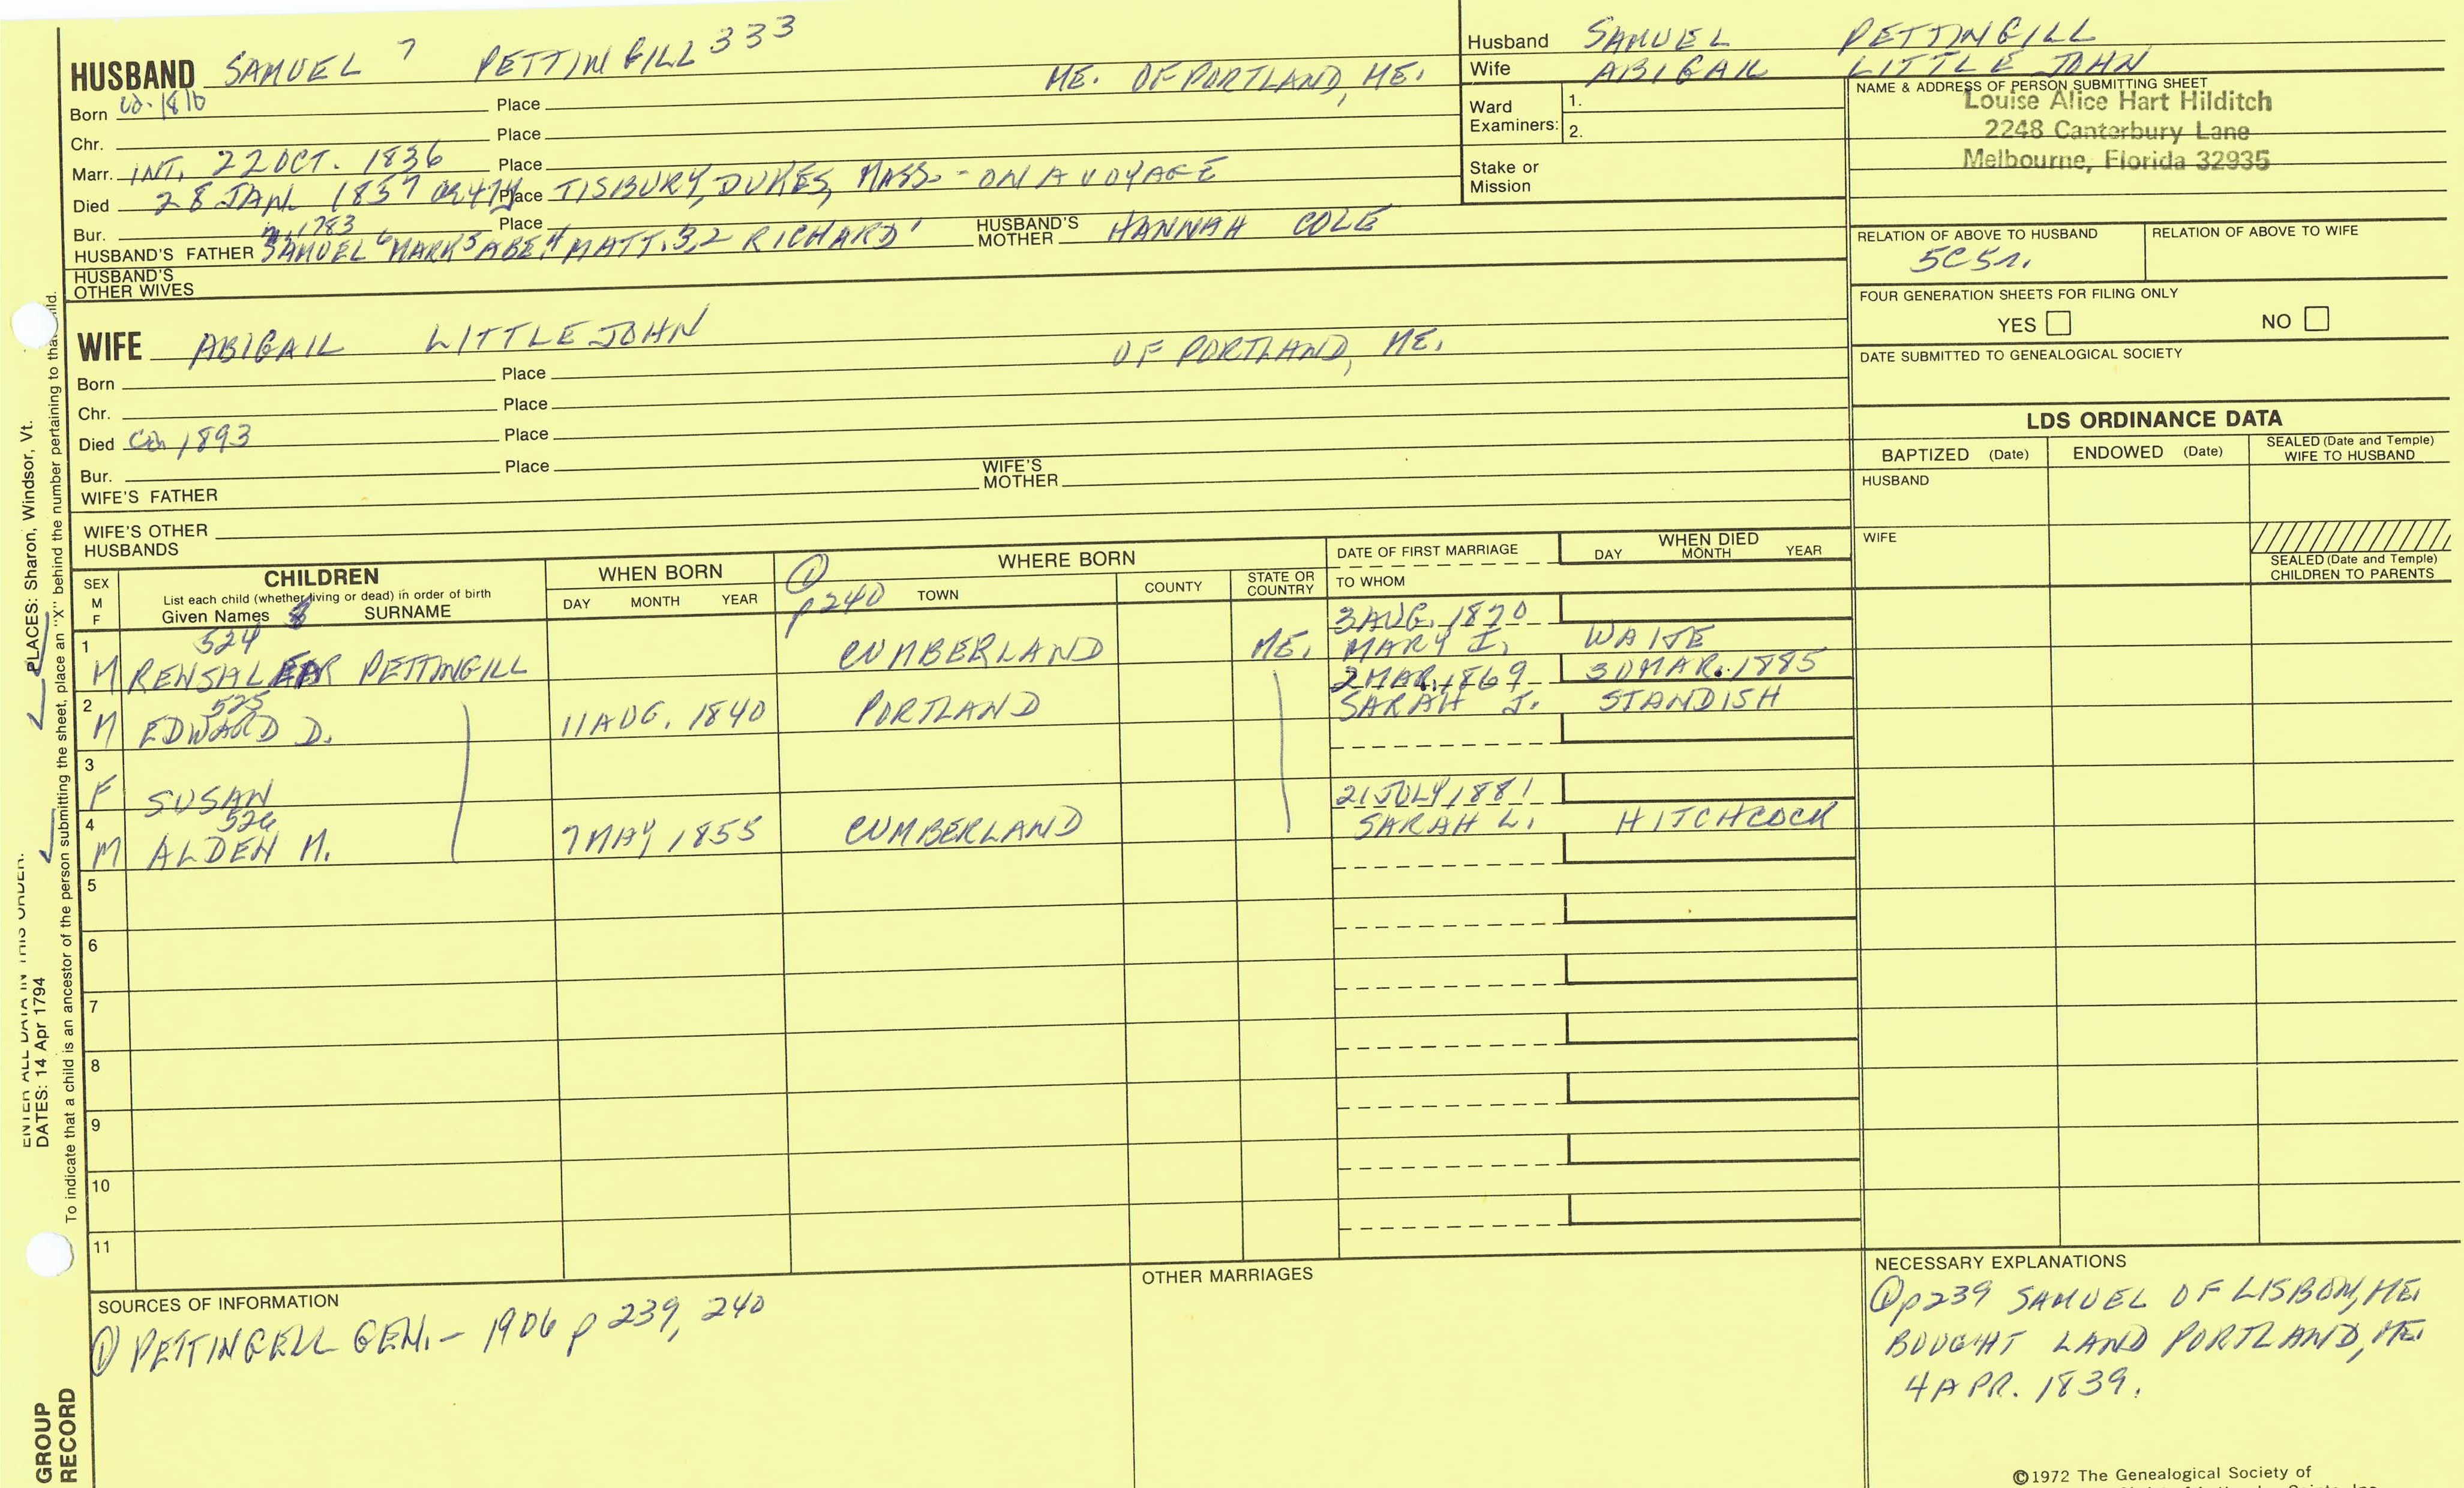 HUSBAND SAMUEL 7 PETTINGILL 333
Born ca. 1810 Place ME. OF PORTLAND, ME.
Chr. Place
Marr. INT. 22 OCT. 1836 Place
Died 28 JAN. 1857 Place TISBURY, DUKES, MASS. - ON A VOYAGE
Bur. Place
1783
HUSBAND'S FATHER SAMUEL 6 MARK 5 ABE. 4 MATT. 3,2 RICHARD 1 HUSBAND'S MOTHER HANNAH COLE
HUSBAND'S OTHER WIVES
WIFE ABIGAIL LITTLEJOHN
Born Place OF PORTLAND, ME.
Chr. Place
Died ca 1893 Place
Bur. Place
WIFE'S FATHER WIFE'S MOTHER
WIFE'S OTHER HUSBANDS
Husband SAMUEL PETTINGILL
Wife ABIGAIL LITTLE JOHN
Ward Examiners: 1.
2.
Stake or Mission
NAME & ADDRESS OF PERSON SUBMITTING SHEET
Louise Alice Hart Hilditch
2248 Canterbury Lane
Melbourne, Florida 32935
RELATION OF ABOVE TO HUSBAND RELATION OF ABOVE TO WIFE
5C5r.
FOUR GENERATION SHEETS FOR FILING ONLY
YES NO
DATE SUBMITTED TO GENEALOGICAL SOCIETY
LDS ORDINANCE DATA
BAPTIZED (Date) ENDOWED (Date) SEALED (Date and Temple) WIFE TO HUSBAND
HUSBAND
WIFE
SEALED (Date and Temple) CHILDREN TO PARENTS
SEX M F CHILDREN WHEN BORN WHERE BORN DATE OF FIRST MARRIAGE WHEN DIED
List each child (whether living or dead) in order of birth
Given Names SURNAME DAY MONTH YEAR TOWN COUNTY STATE OR COUNTRY TO WHOM DAY MONTH YEAR
① p 240
1 524 3 AUG. 1870
M PETTINGILL CUMBERLAND ME. MARY I. WAITE
2 525 2 MAR. 1869 30 MAR. 1885
M EDWARD D. 11 AUG. 1840 PORTLAND SARAH J. STANDISH
3
F SUSAN
4 526 21 JULY 1881
M ALDEN M. 7 MAY 1855 CUMBERLAND SARAH L. HITCHCOCK
5
6
7
8
9
10
11
SOURCES OF INFORMATION
① PETTINGELL GEN. - 1906 p 239, 240
OTHER MARRIAGES
NECESSARY EXPLANATIONS
① p 239 SAMUEL OF LISBON, ME.
BOUGHT LAND PORTLAND, ME.
4 APR. 1839.
©1972 The Genealogical Society of
PLACES: Sharon, Windsor, Vt.
ENTER ALL DATA IN THIS ORDER:
DATES: 14 Apr 1794
To indicate that a child is an ancestor of the person submitting the sheet, place an "X" behind the number pertaining to that child.
GROUP
RECORD